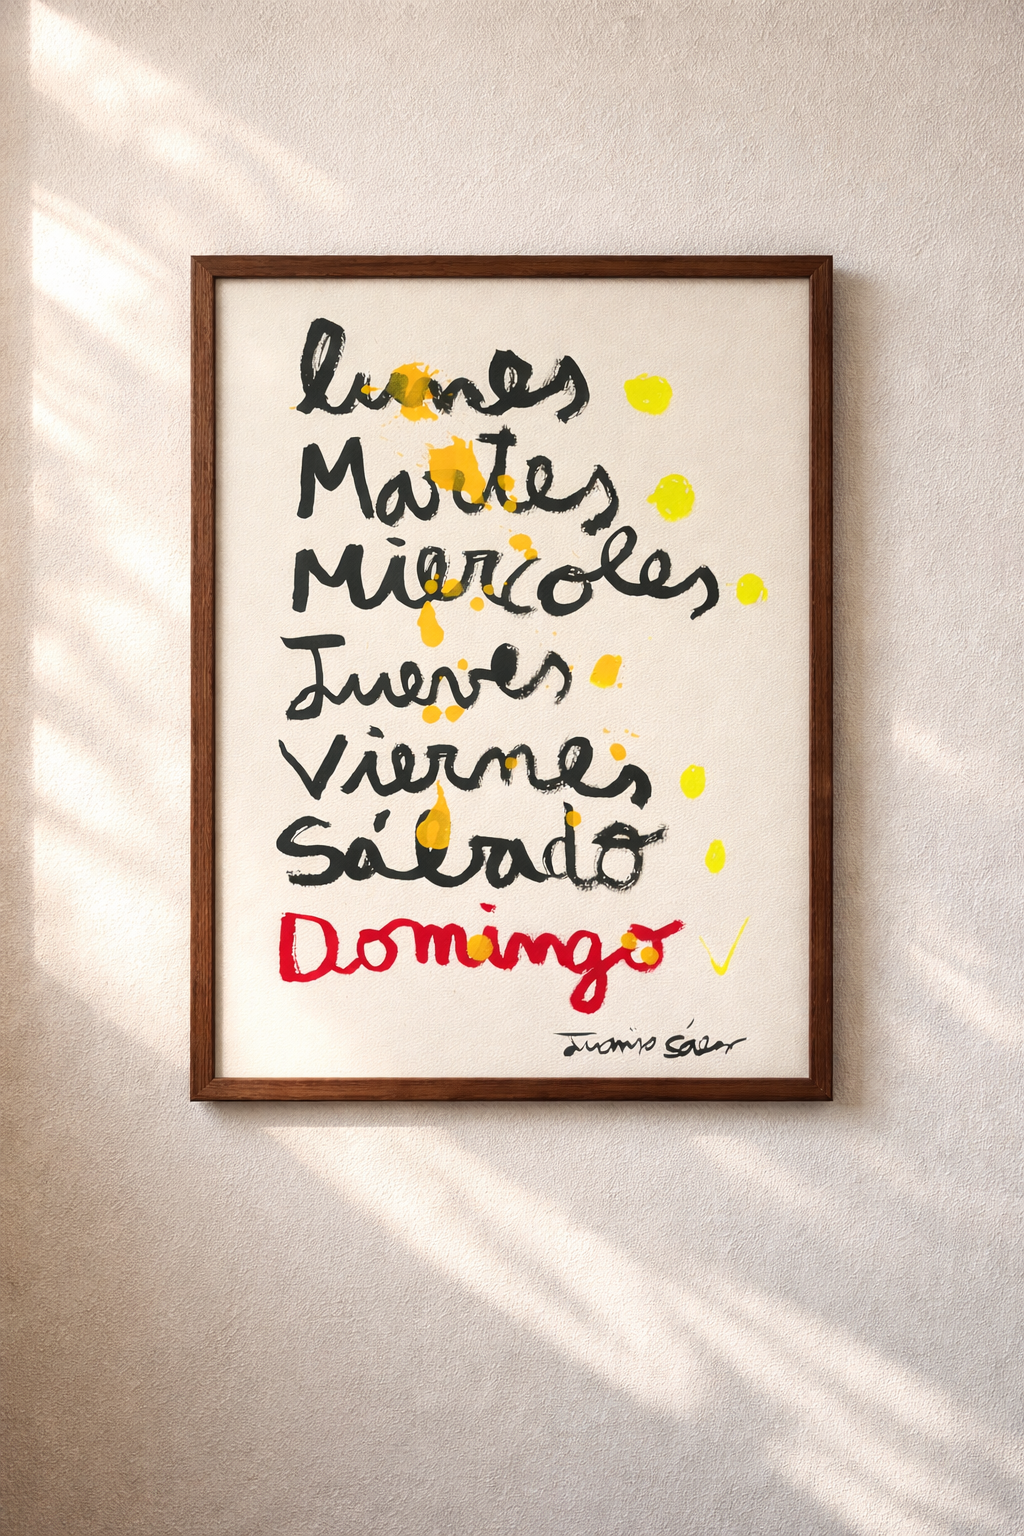 lunes
Martes
Miercoles
Jueves
Viernes
Sábado
Domingo
Juanjo Sáez